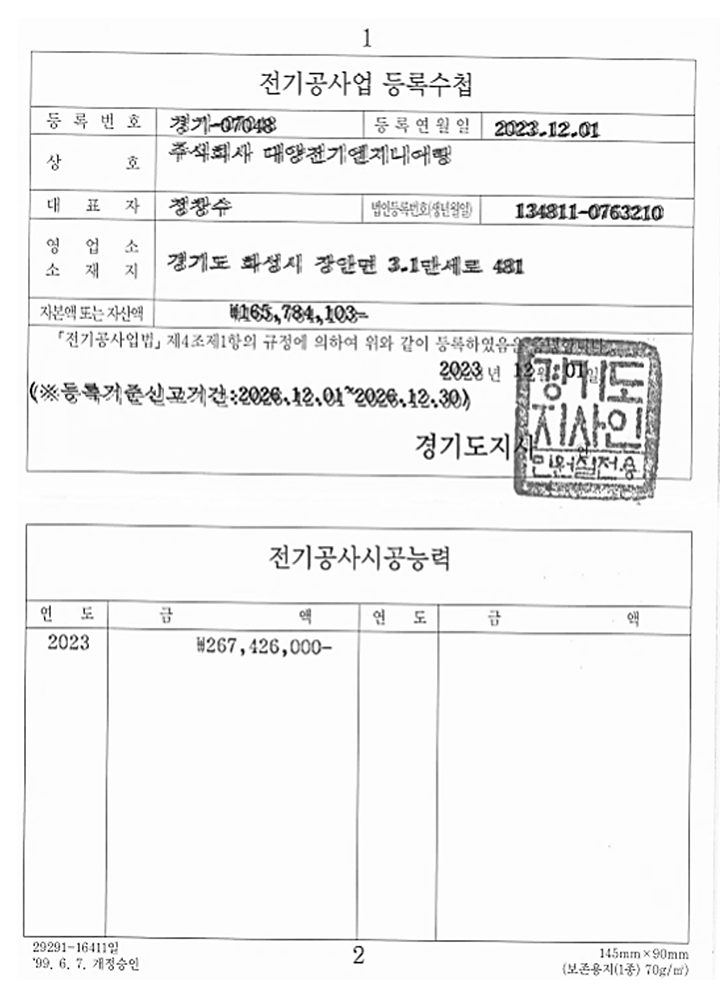 1
전기공사업 등록수첩
등록번호 경기-07048 등록연월일 2023.12.01
상호 주식회사 대양전기엔지니어링
대표자 정창수 법인등록번호(생년월일) 134811-0763210
영업소
소재지 경기도 화성시 장안면 3.1만세로 481
자본액 또는 자산액 ₩165,784,103-
「전기공사업법」제4조제1항의 규정에 의하여 위와 같이 등록하였음을
2023년 12월 01일
(※등록기준신고기간:2026.12.01~2026.12.30)
경기도지사 인
경기도
지사인
민원실전용
2
전기공사시공능력
연도 금액 연도 금액
2023 ₩267,426,000-
29291-16411일
'99. 6. 7. 개정승인
145mm×90mm
(보존용지(1종) 70g/㎡)